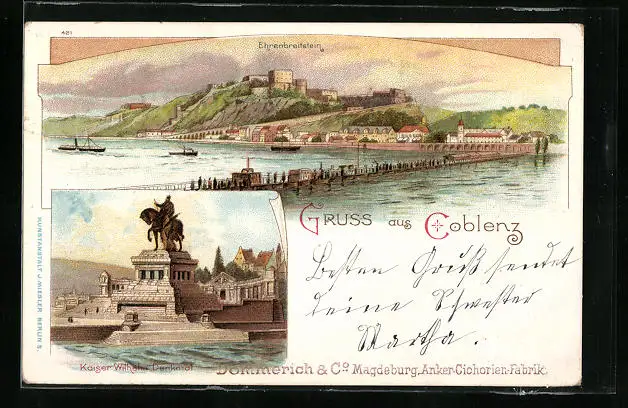 421
Ehrenbreitstein
GRUSS aus Coblenz
Besten Gruß sendet
Deine Schwester
Martha.
Kaiser Wilhelm Denkmal
Dommerich & Co Magdeburg. Anker-Cichorien-Fabrik.
KUNSTANSTALT J. MIESLER. BERLIN S.